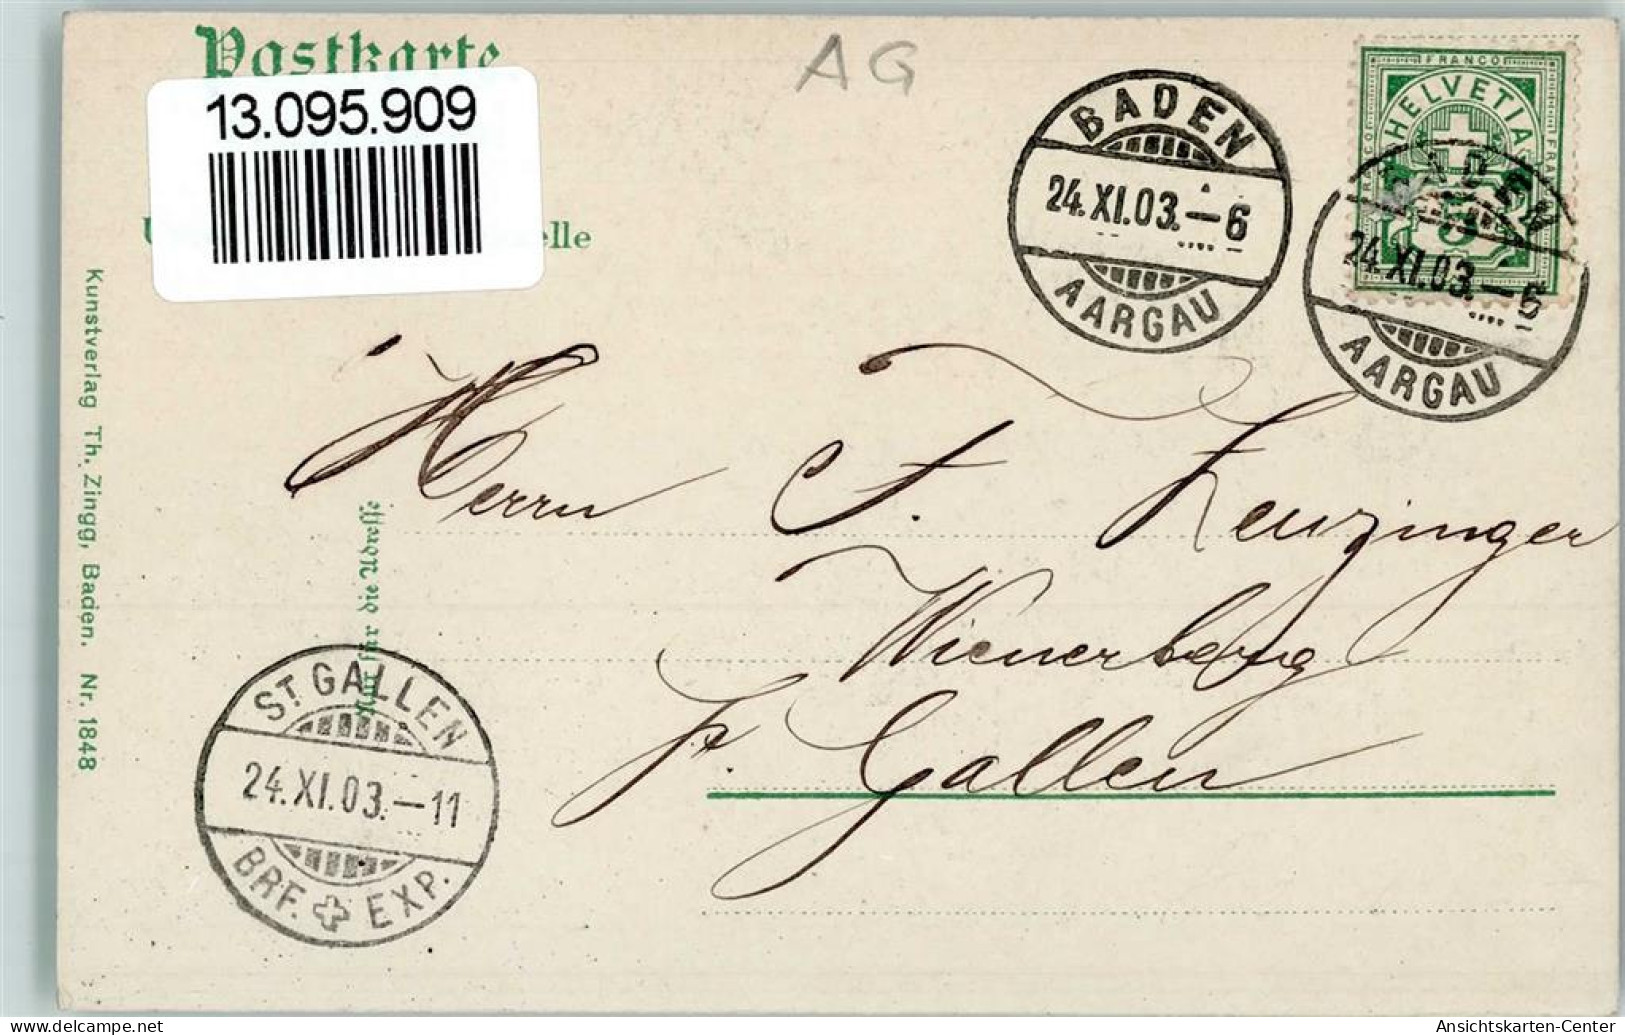 Postkarte
13.095.909
elle
AG
BADEN
24.XI.03.–6
AARGAU
FRANCO
HELVETIA
FRANCO
FRANCO
5
24.XI.03.–6
AARGAU
Herrn F. Leuzinger
Wienerberg
St. Gallen
Nur für die Adresse
Kunstverlag Th. Zingg, Baden. Nr. 1848
ST. GALLEN
24.XI.03.–11
BRF. EXP.
Ansichtskarten-Center